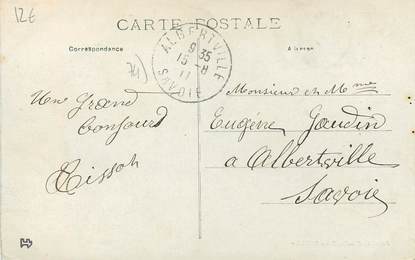 12€
CARTE POSTALE
Correspondance
ALBERTVILLE
9 35
15 -8
11
SAVOIE
Une Grand
bonjour
Tissot
Monsieur et Mme
Eugène Gaudin
a Albertville
Savoie